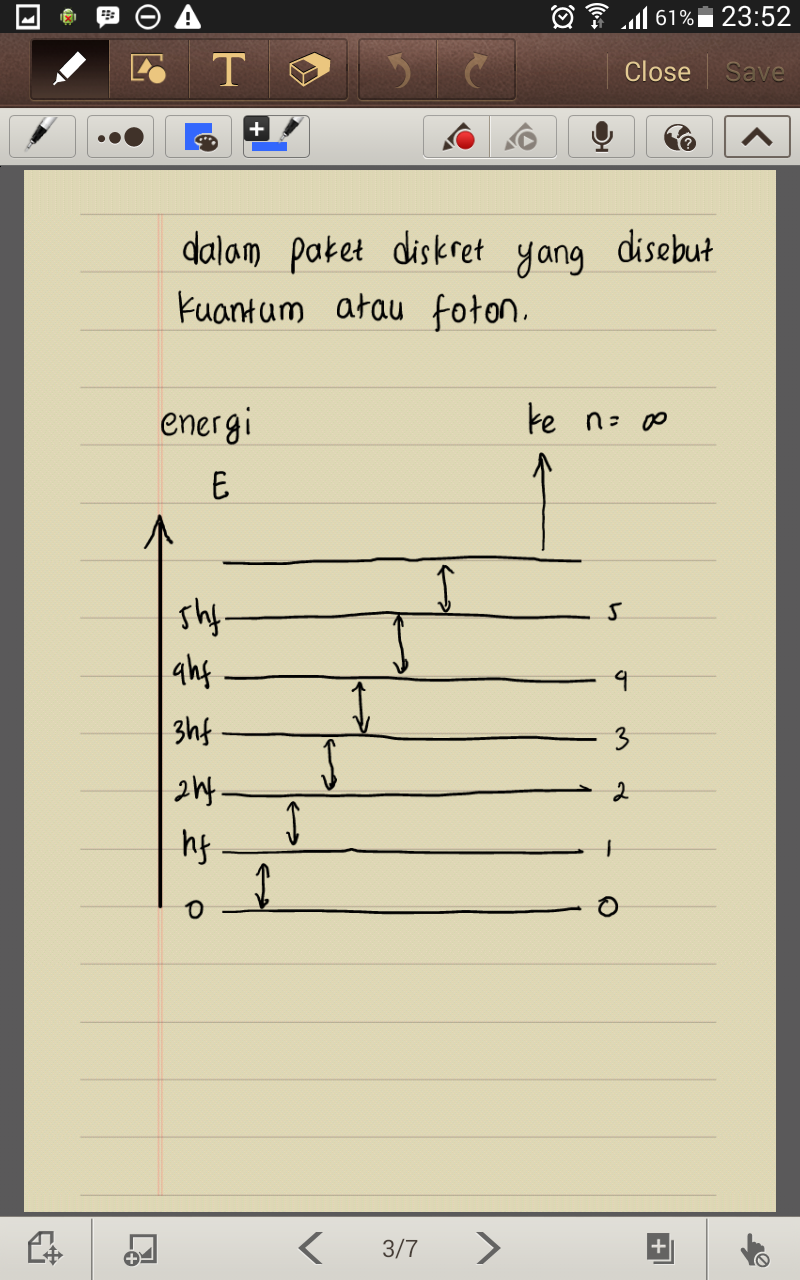 61% 23:52
T Close Save
dalam paket diskret yang disebut
kuantum atau foton.
energi ke n= ∞
E
5hf 5
4hf 4
3hf 3
2hf 2
hf 1
0 0
3/7